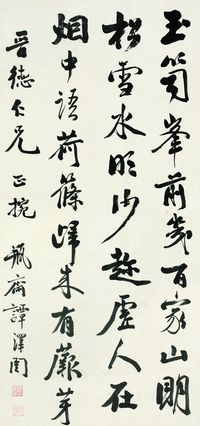 玉笥峯前幾百家山明
松雪水明沙趁虛人在
烟中語荷篠歸來有蕨芽
晉德仁兄 正捥 瓶齋譚澤闓